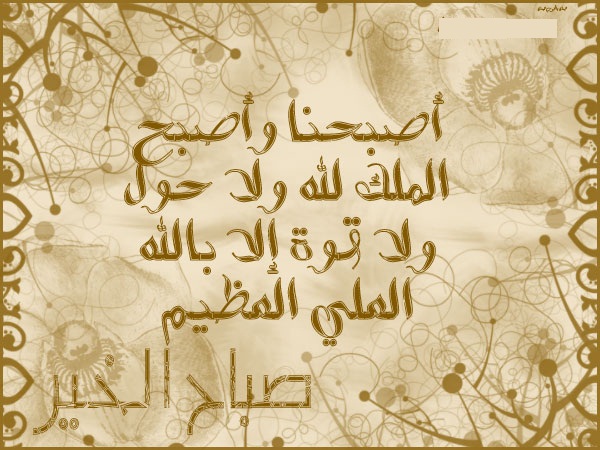 أصبحنا وأصبح
الملك لله ولا حول
ولا قوة إلا بالله
العلي العظيم
صباح الخير